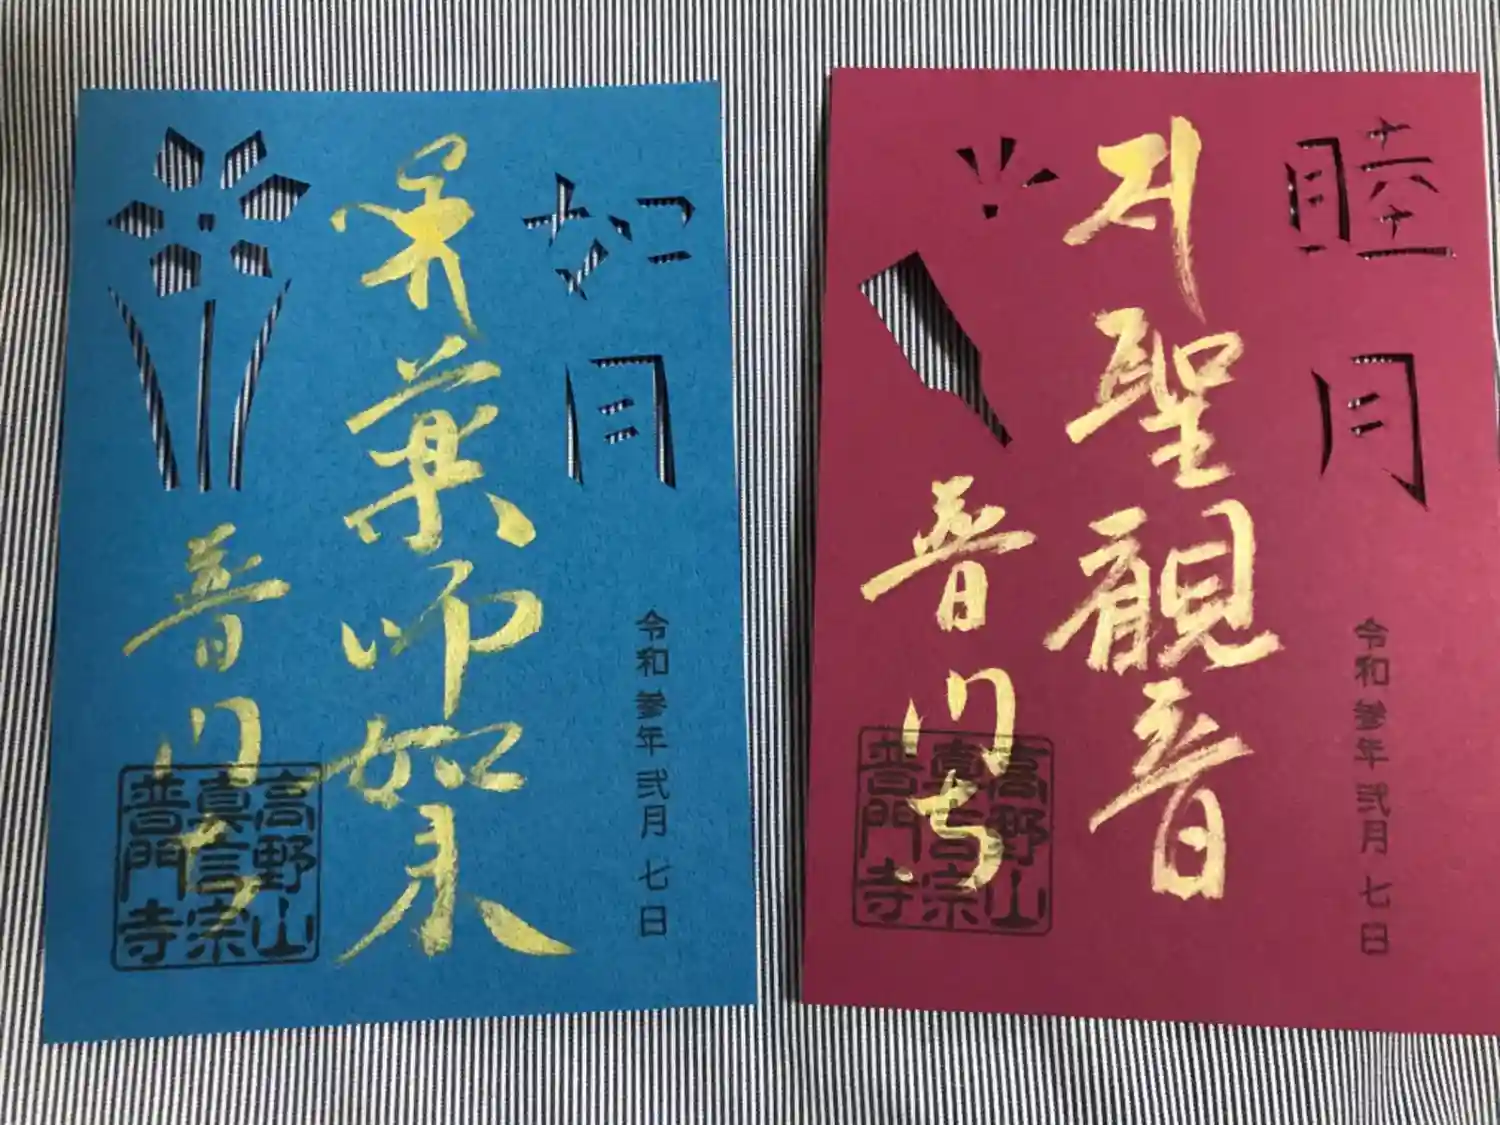 睦月
令和参年弐月七日
聖観音
普門寺
高野山
真言宗
普門寺
如月
令和参年弐月七日
薬師如来
普門寺
高野山
真言宗
普門寺